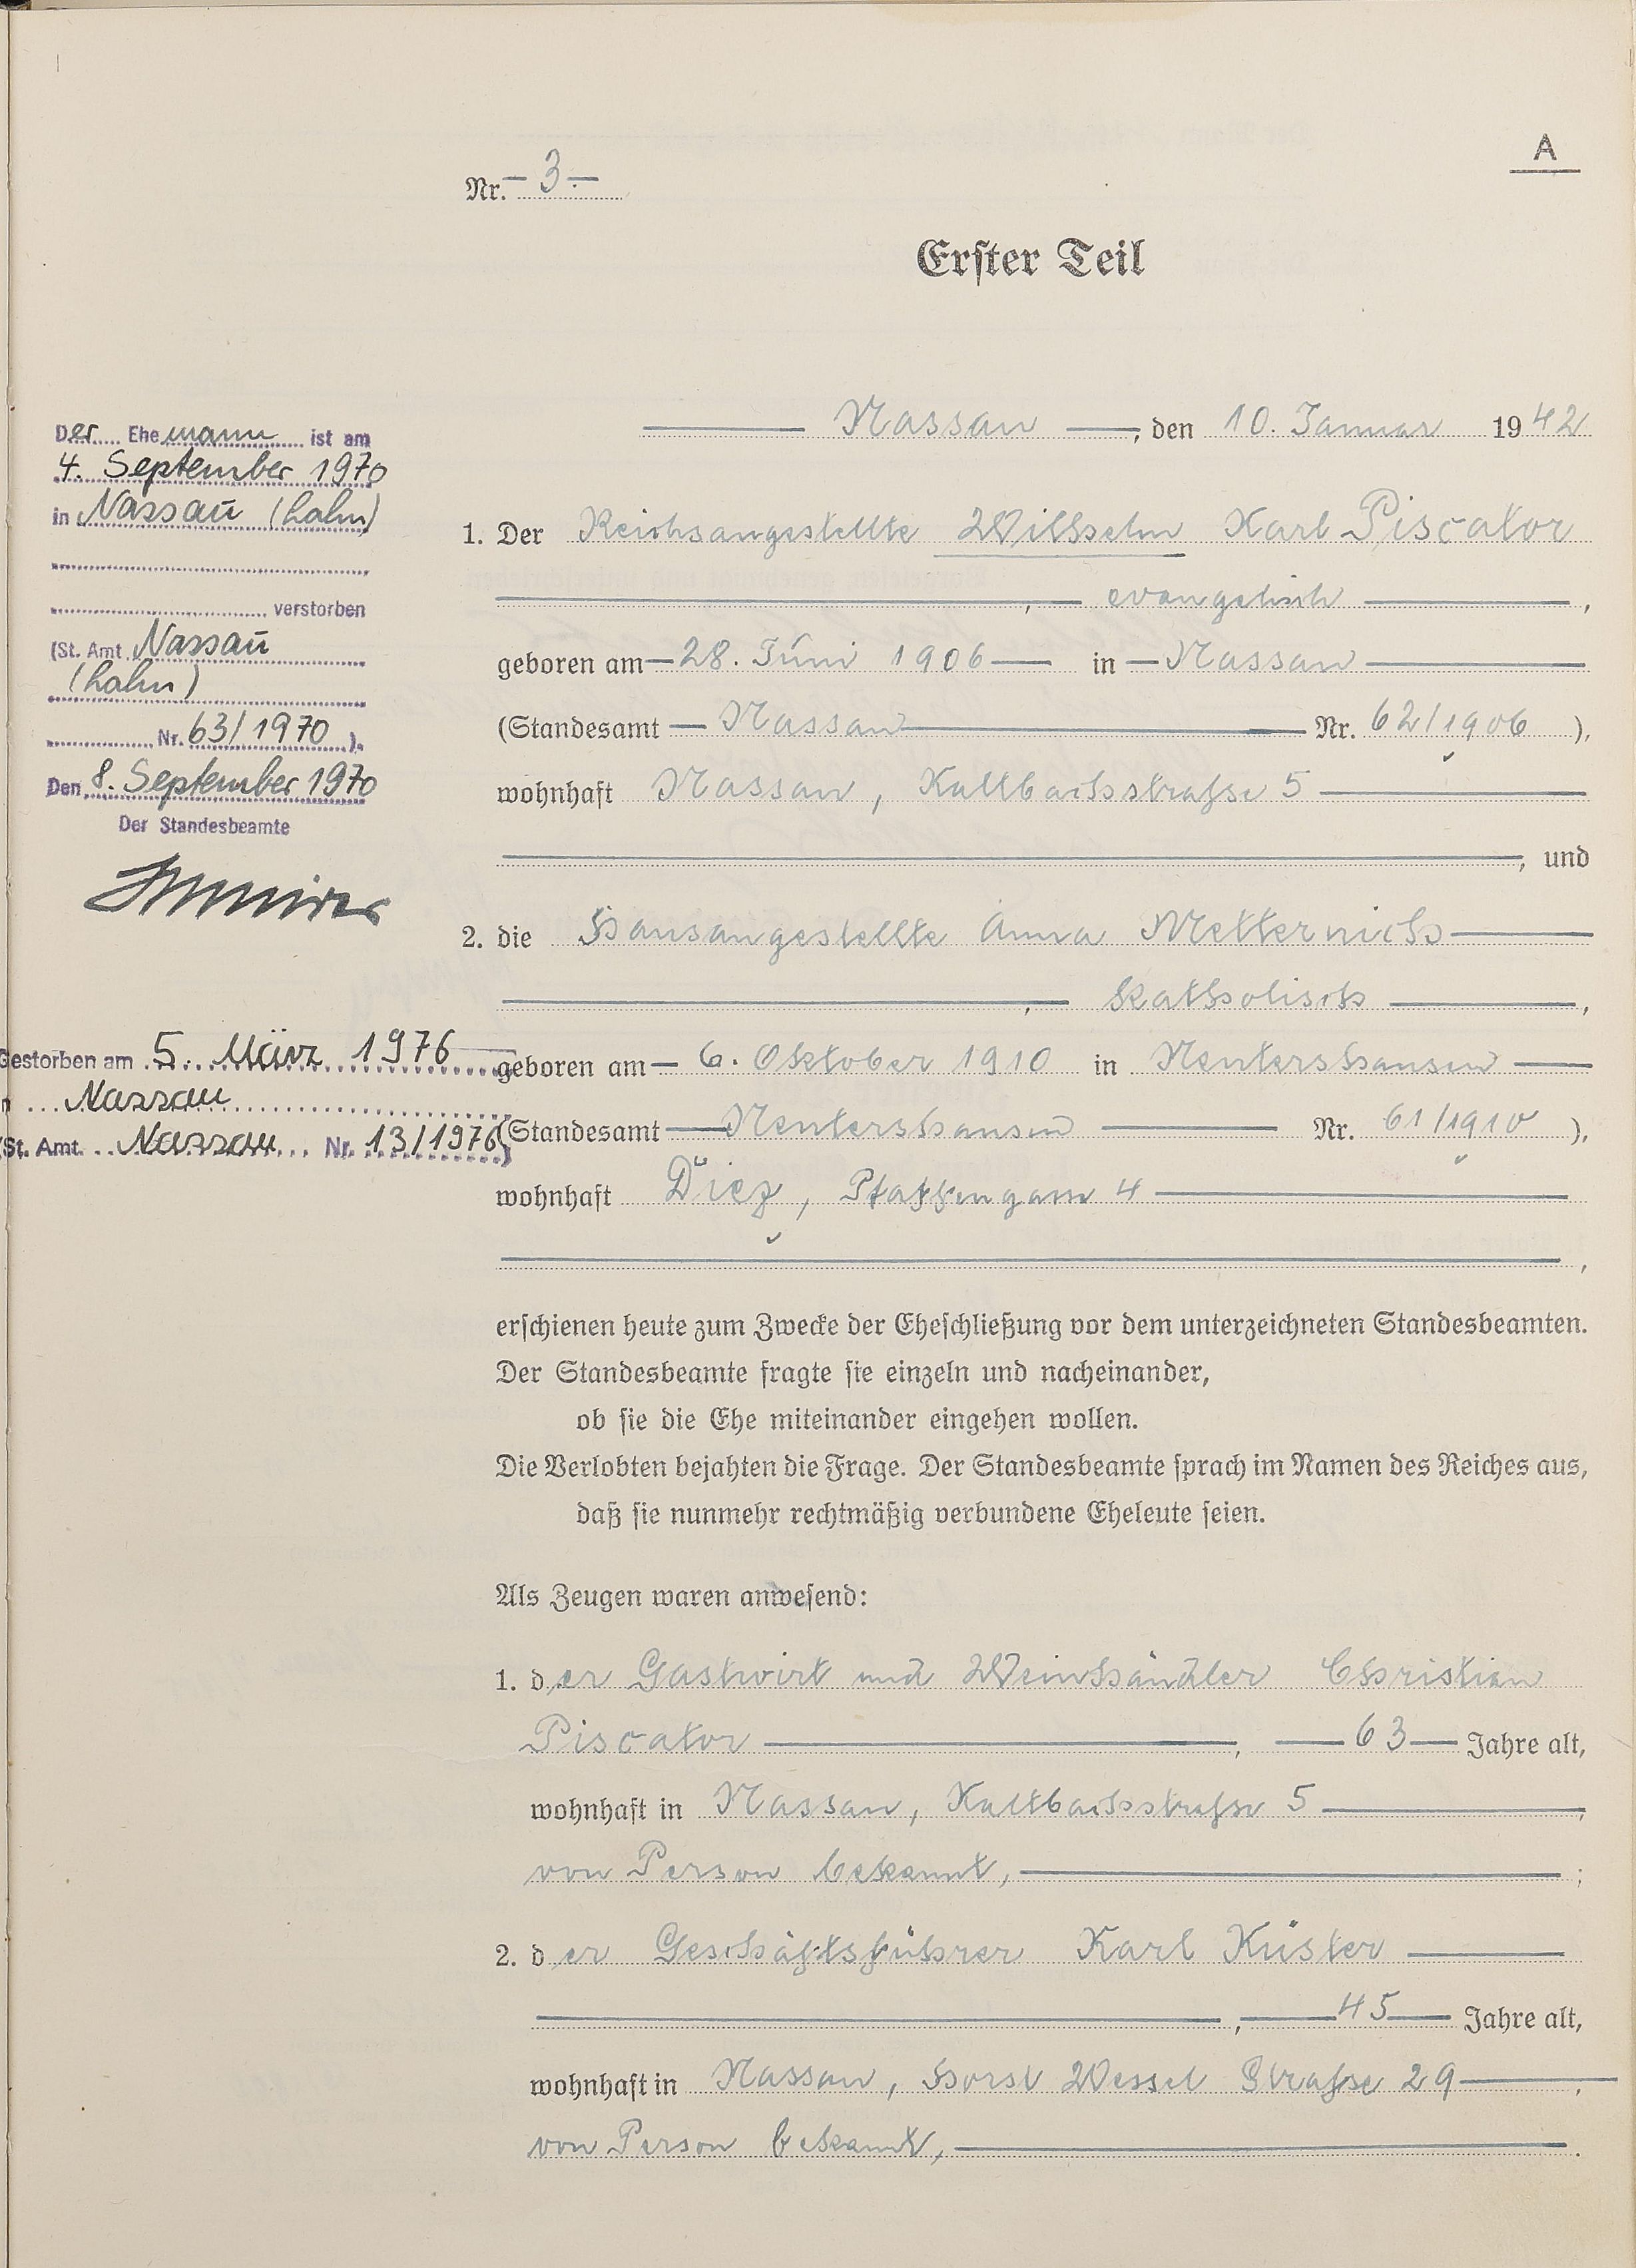 A
Nr. – 3 –
Erster Teil
Nassau, den 10. Januar 1942
1. Der Reichsangestellte Wilhelm Karl Piscator
, evangelisch ,
geboren am 28. Juni 1906 in Nassau
(Standesamt Nassau Nr. 62/1906 ),
wohnhaft Nassau, Kaltbachstraße 5
, und
2. die Hausangestellte Anna Metternich
, katholisch ,
geboren am 6. Oktober 1910 in Nentershausen
(Standesamt Nentershausen Nr. 61/1910 ),
wohnhaft Diez, Pfaffengasse 4
,
erschienen heute zum Zwecke der Eheschließung vor dem unterzeichneten Standesbeamten.
Der Standesbeamte fragte sie einzeln und nacheinander,
ob sie die Ehe miteinander eingehen wollen.
Die Verlobten bejahten die Frage. Der Standesbeamte sprach im Namen des Reiches aus,
daß sie nunmehr rechtmäßig verbundene Eheleute seien.
Als Zeugen waren anwesend:
1. der Gastwirt und Weinhändler Christian
Piscator , 63 Jahre alt,
wohnhaft in Nassau, Kaltbachstraße 5 ,
von Person bekannt, ;
2. der Geschäftsführer Karl Küster
, 45 Jahre alt,
wohnhaft in Nassau, Horst Wessel Straße 29 ,
von Person bekannt, .
Der Ehemann ist am
4. September 1970
in Nassau (Lahn)
verstorben
(St. Amt Nassau
(Lahn)
Nr. 63/1970 ).
Den 8. September 1970
Der Standesbeamte
Gestorben am 5. März 1976
Nassau
(St. Amt Nassau Nr. 13/1976)